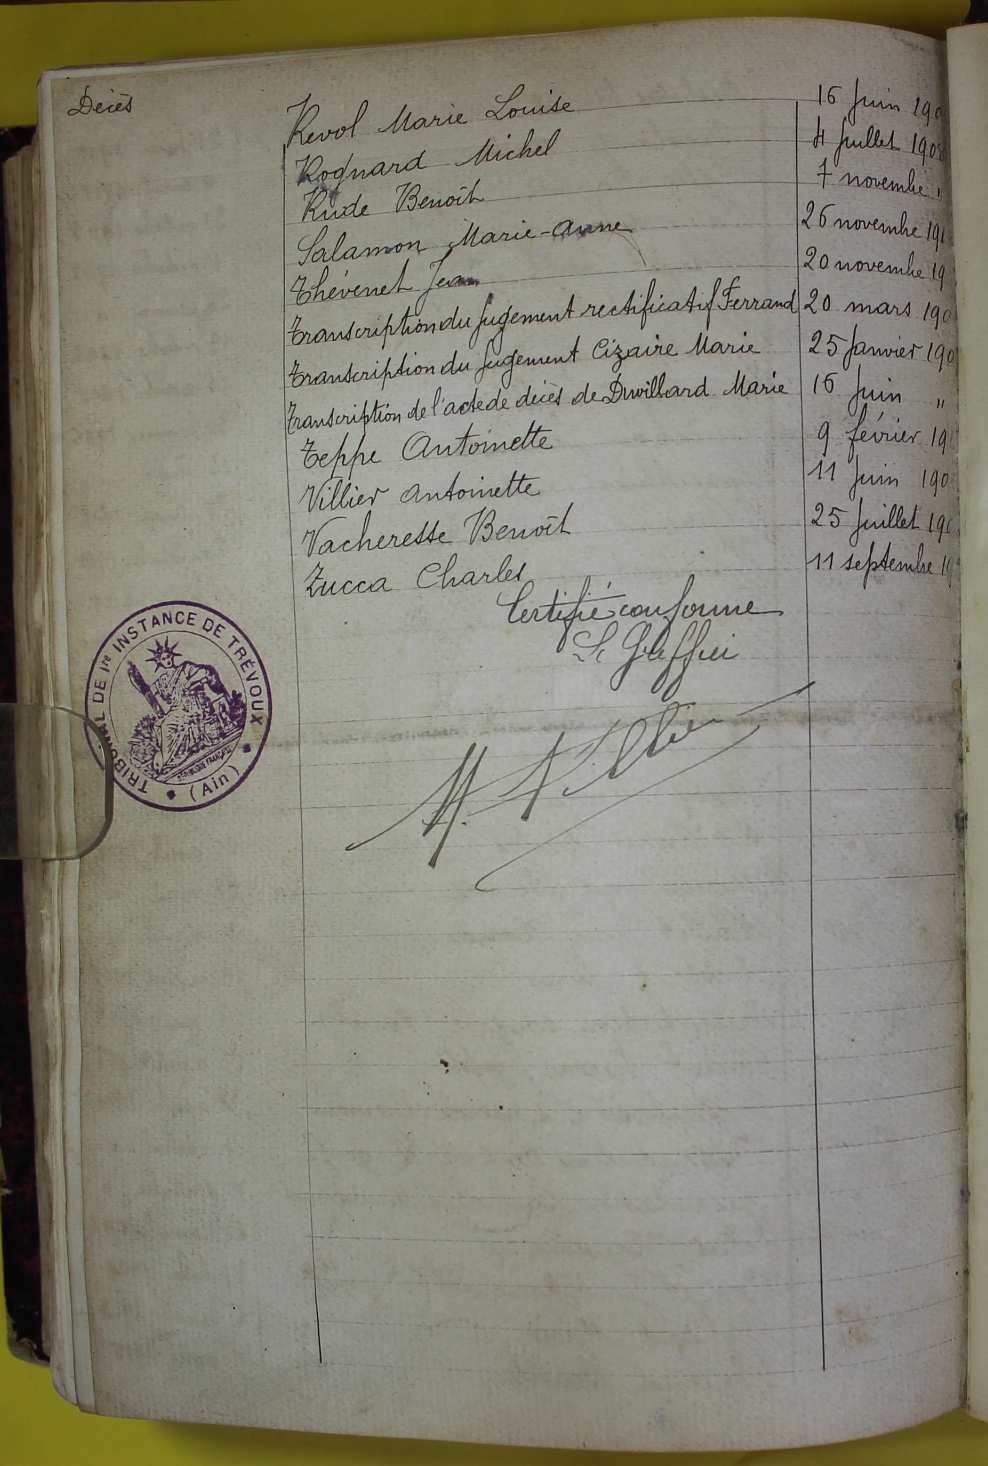 Décès
Revol Marie Louise 16 Juin 190
Rognard Michel 4 Juillet 1908
Rude Benoît 7 novembre "
Salamon Marie-Anne 26 novembre 19
Thévenet Jean 20 novembre 19
Transcription du Jugement rectificatif Ferrand 20 mars 190
Transcription du Jugement Cizaire Marie 25 Janvier 190
Transcription de l'acte de décès de Duvillard Marie 16 Juin "
Teppe Antoinette 9 février 19
Villier Antoinette 11 Juin 190
Vacheresse Benoît 25 Juillet 19
Zucca Charles 11 septembre 19
Certifié conforme
Le Greffier
TRIBUNAL DE 1re INSTANCE DE TRÉVOUX
RÉPUBLIQUE FRANÇAISE
(Ain)